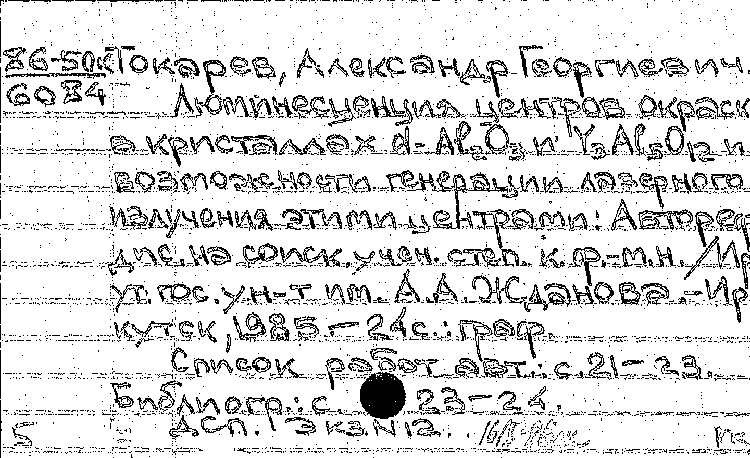 86-50к Токарев, Александр Георгиевич.
6084 Люминесценция центров окраск
в кристаллах d-Al₂O₃ и Y₃Al₅O₁₂ и
возможности генерации лазерного
излучения этими центрами: Автореф
дис. на соиск. учен. степ. к.ф.-м.н. /Ир
ут. гос. ун-т им. А.А. Жданова.-Ир
кутск, 1985.-24с.: граф.
Список работ авт.: с.21-23.
Библиогр.: с. 23-24.
5 ДСП. 1 экз.N12.